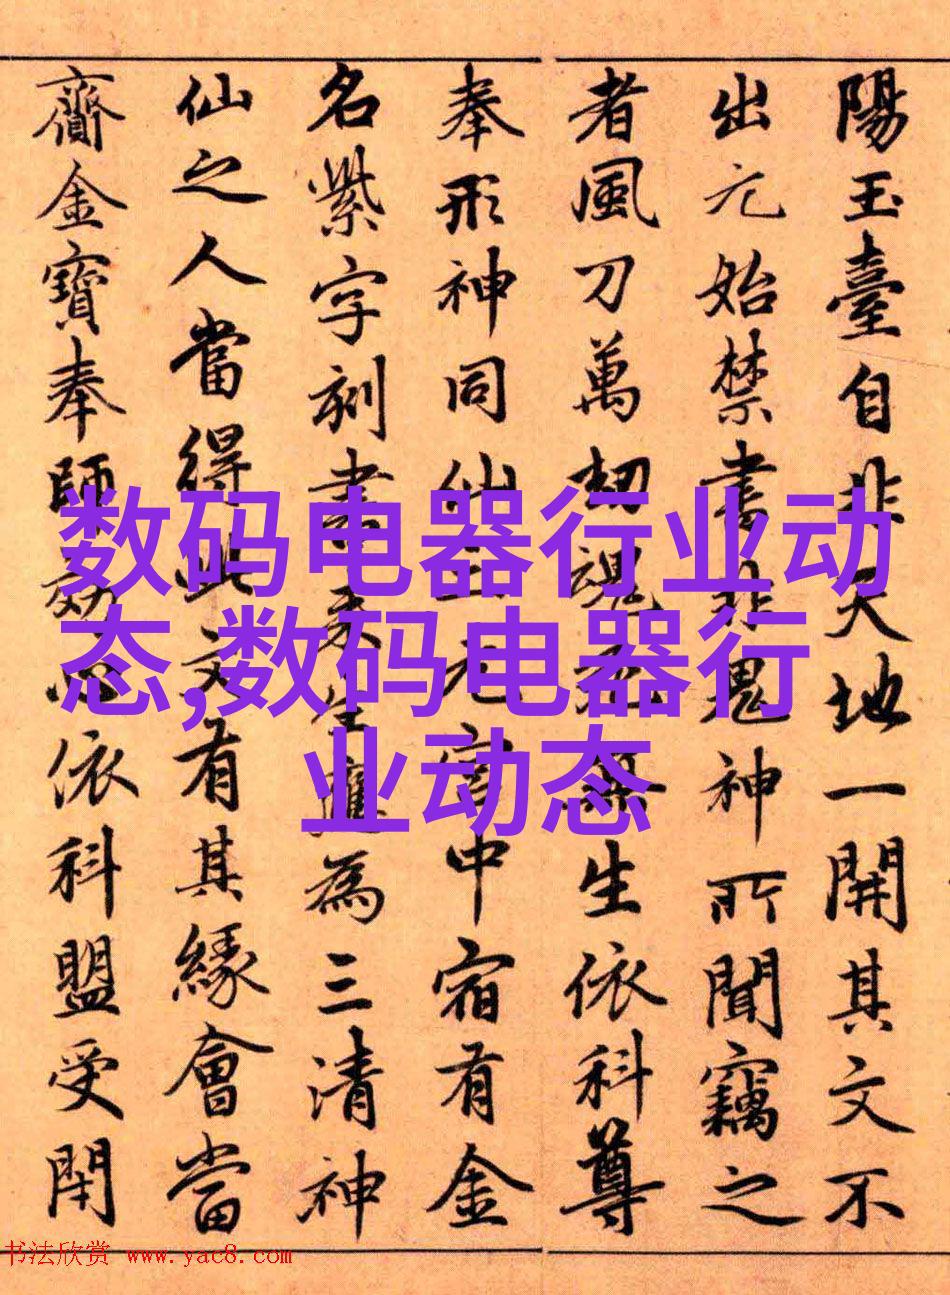 陽玉臺自非天地一開其文不
出元始禁書非鬼神所聞竊之
者風刀萬劫魂死無生依科尊
奉形神同仙上元宮中宿有金
名紫字刻書來生應為三清神
仙之人當得此文有其緣會當
齎金寶奉師效心依科盟受閇
数码电器行业动
态,数码电器行
业动态
书法欣赏 www.yac8.com